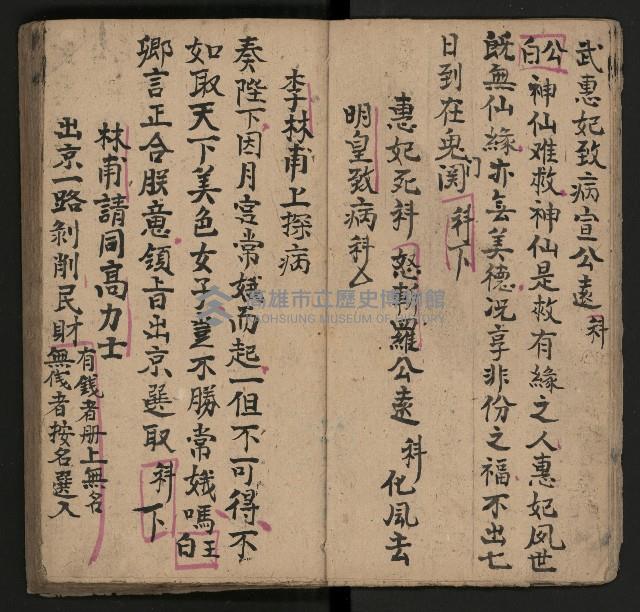 武惠妃致病宣公遠科
公白神仙难救神仙是救有緣之人惠妃夙世
既無仙緣亦無美德况享非份之福不出七
日到在鬼门関科下
惠妃死科怒打羅公遠科化風去
明皇致病科
李林甫上探病
奏陛下因月宮常娥而起一但不可得不
如取天下美色女子豈不勝常娥嗎王白
卿言正合朕意領旨出京選取科下
林甫請同高力士
出京一路剝削民財有錢者册上無名
無伐者按名選入
高雄市立歷史博物館
KAOHSIUNG MUSEUM OF HISTORY